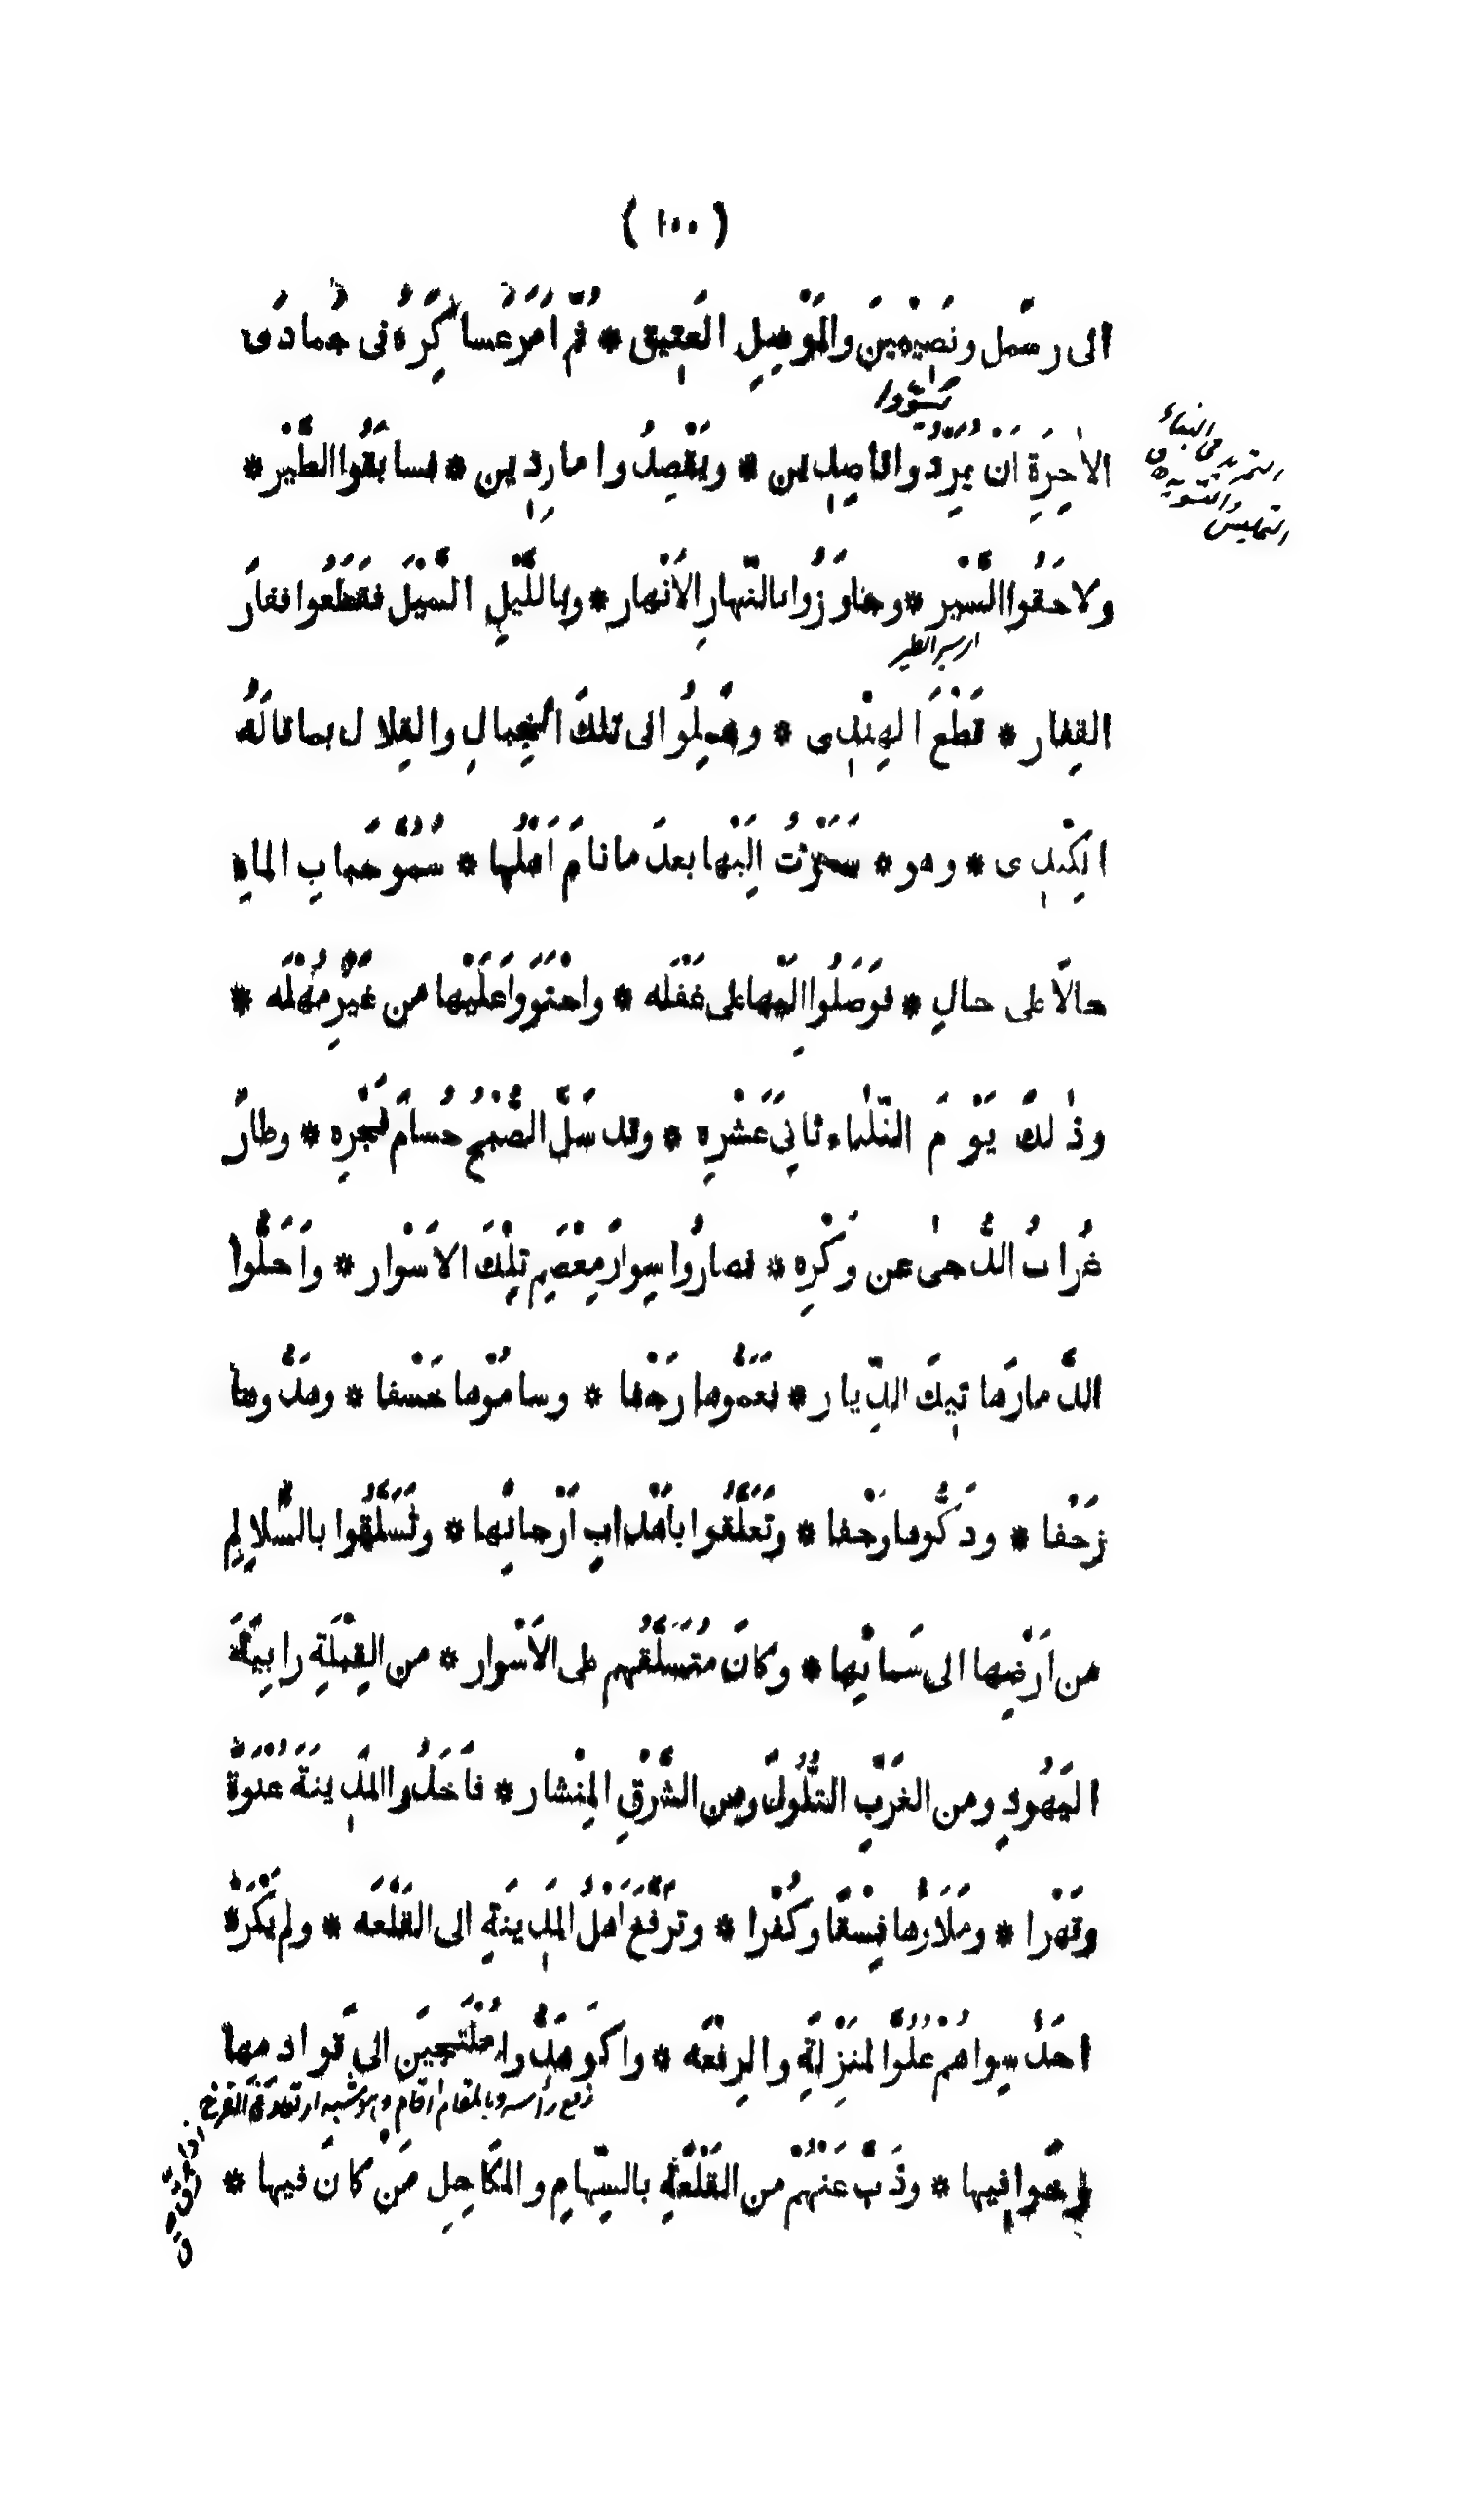 ( ١٠٠ )
الى رسمل ونَصِيْبِينَ والمَوْصِلِ العَتِيق * ثُمَّ اَمَرَ عَساكِرَهُ فى جُمادَى
يُسَوُّوا
الاٰخِرَةِ اَنْ يُمَرِّدُوا قاصِدِين * ويَقْصِدُوا مارِدِين * فسابَقُوا الطَّيْر *
التمريد فى البناء
التمليس والتسوية
ولاحَقُوا السَّيْر * وجاوَزُوا بالنَّهارِ الاَنْهار * وباللَّيْلِ السَّيْلَ فقَطَعُوا قفارَ
اى سير الطير
القِفار * قَطْعَ الهِنْدِى * وحَمَلُوا الى تلكَ الجِبالِ والقِلال بما قالَهُ
الكِنْدِى * وهو * سَمَوْتُ اِلَيْها بعدَ ما نامَ اَهْلُها * سُمُوَّ حَبابِ الماءِ
حالًا على حالِ * فوَصَلُوا اِلَيْها على غَفْلَه * واحْتَوَوا عَلَيْها من غَيْرِ مُهْلَه *
وذٰلكَ يَوْمَ الثَّلٰثاء ثانِىَ عَشْرِه * وقد سَلَّ الصُّبْحُ حُسامَ فَجْرِه * وطارَ
غُرابُ الدُّجٰى عن وَكْرِه * فصارُوا سِوارَ مِعْصَمِ تِلْكَ الاَسْوار * واَحَلُّوا
الدَّمارَ هاتِيكَ الدِّيار * فعَمُّوها رَجْفا * وسامُوْها خَسْفا * وهَدُّوها
زَحْفا * ودَكُّوها رَجْفا * وتَعَلَّقُوا باَهْدابِ اَرْجائِها * وتَسَلَّقُوا بالسَّلالِمِ
من اَرْضِها الى سَمائِها * وكانَ مُتَسَلَّقُهم على الاَسْوار * من القِبْلَةِ رابِيَةَ
اليَهُودِ ومن الغَرْبِ التُّلُولَ ومن الشَّرْقِ المِنْشار * فاَخَذُوا المَدِينَةَ عَنْوَةً
وقَهْرا * ومَلَأُوها فِسْقًا وكُفْرا * وتَرَفَّعَ اَهْلُ المَدِينَةِ الى القَلْعَه * ولم يَكْرَهْ
احَدٌ سِواهُمْ عُلُوَّ المَنْزِلَةِ والرِفْعَه * واكْوَهَدُّوا مُلْتَجِينَ الى قوادِمِها
وخوافِيها * وذَبَّ عَنْهُمْ من القَلْعَةِ بالسِّهامِ والمَكاحِلِ مَنْ كانَ فيها *